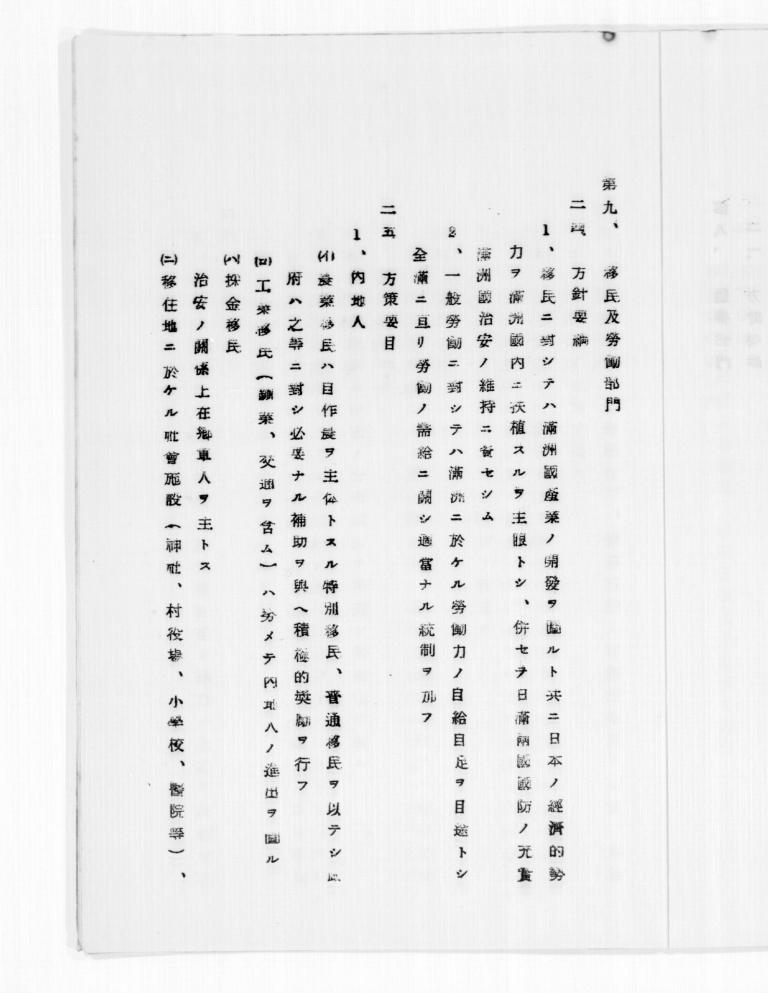 第九、移民及勞働部門
二四 方針要綱
1、移民ニ對シテハ滿洲國產業ノ開發ヲ圖ルト共ニ日本ノ經濟的勢
力ヲ滿洲國內ニ扶植スルヲ主眼トシ、併セテ日滿兩國國防ノ充實
滿洲國治安ノ維持ニ資セシム
2、一般勞働ニ對シテハ滿洲ニ於ケル勞働力ノ自給自足ヲ目途トシ
全滿ニ亘リ勞働ノ需給ニ關シ適當ナル統制ヲ加フ
二五 方策要目
1、內地人
(イ)農業移民ハ自作農ヲ主体トスル特別移民、普通移民ヲ以テシ政
府ハ之等ニ對シ必要ナル補助ヲ與ヘ積極的奬勵ヲ行フ
(ロ)工業移民(鑛業、交通ヲ含ム)ハ努メテ內地人ノ進出ヲ圖ル
(ハ)採金移民
治安ノ關係上在鄕軍人ヲ主トス
(ニ)移住地ニ於ケル社會施設(神社、村役場、小學校、醫院等)、